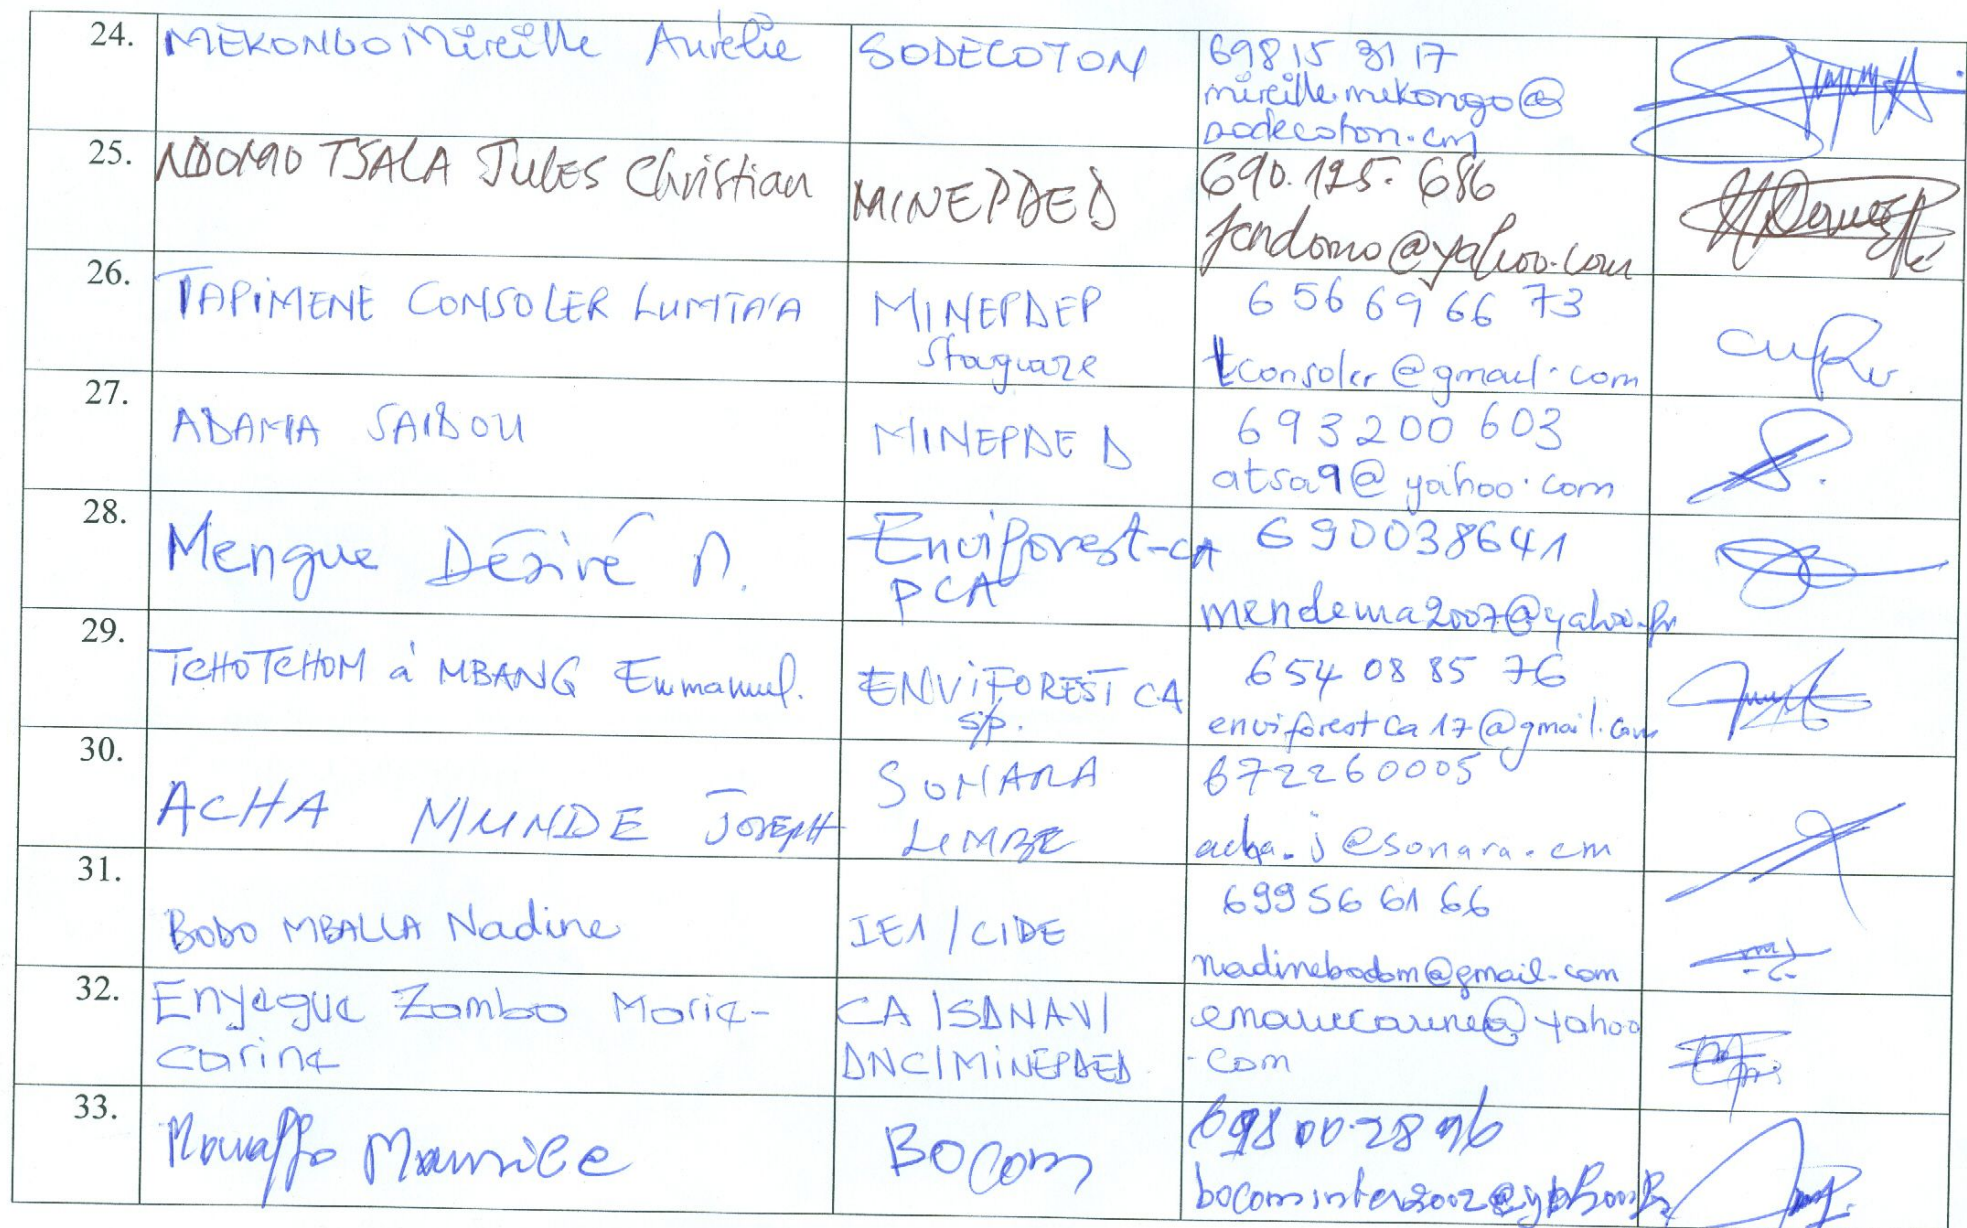 24. MEKONGO Mireille Aurélie SODECOTON 698 15 31 17
mireille.mekongo@
sodecoton.cm
25. NDOMO TSALA JULES Christian MINEPDED 690.125.686
jcndomo@yahoo.com
26. TAPIMENE CONSOLER MINEPDEP 6 56 69 66 73
Stagiaire tconsoler@gmail.com
27. ADAMA SAIBOU MINEPDED 693 200 603
atsa9@yahoo.com
28. Mengue Désiré D. Enviforest-CA 690038641
PCA mendema2007@yahoo.fr
29. TCHOTCHOM à MBANG Emmanuel. ENVIFOREST CA 654 08 85 76
S/P. enviforestca17@gmail.com
30. ACHA MUNDE JOSEPH SONARA 672260005
LIMBE acha.j@sonara.cm
31. BODO MBALLA Nadine IE1/CIDE 699 56 61 66
nadinebodom@gmail.com
32. Enyegue Zambo Marie- CA/SDNAV/ emariecarine@yahoo
Carine DNC/MINEPDED .com
33. Maurice BOCOM 698 00.28 96
bocominter2002@yahoo.fr